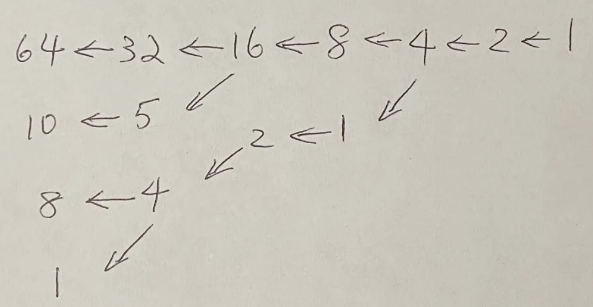 64 ← 32 ← 16 ← 8 ← 4 ← 2 ← 1
10 ← 5 ↙ 2 ← 1 ↙
8 ← 4 ↙
1 ↙